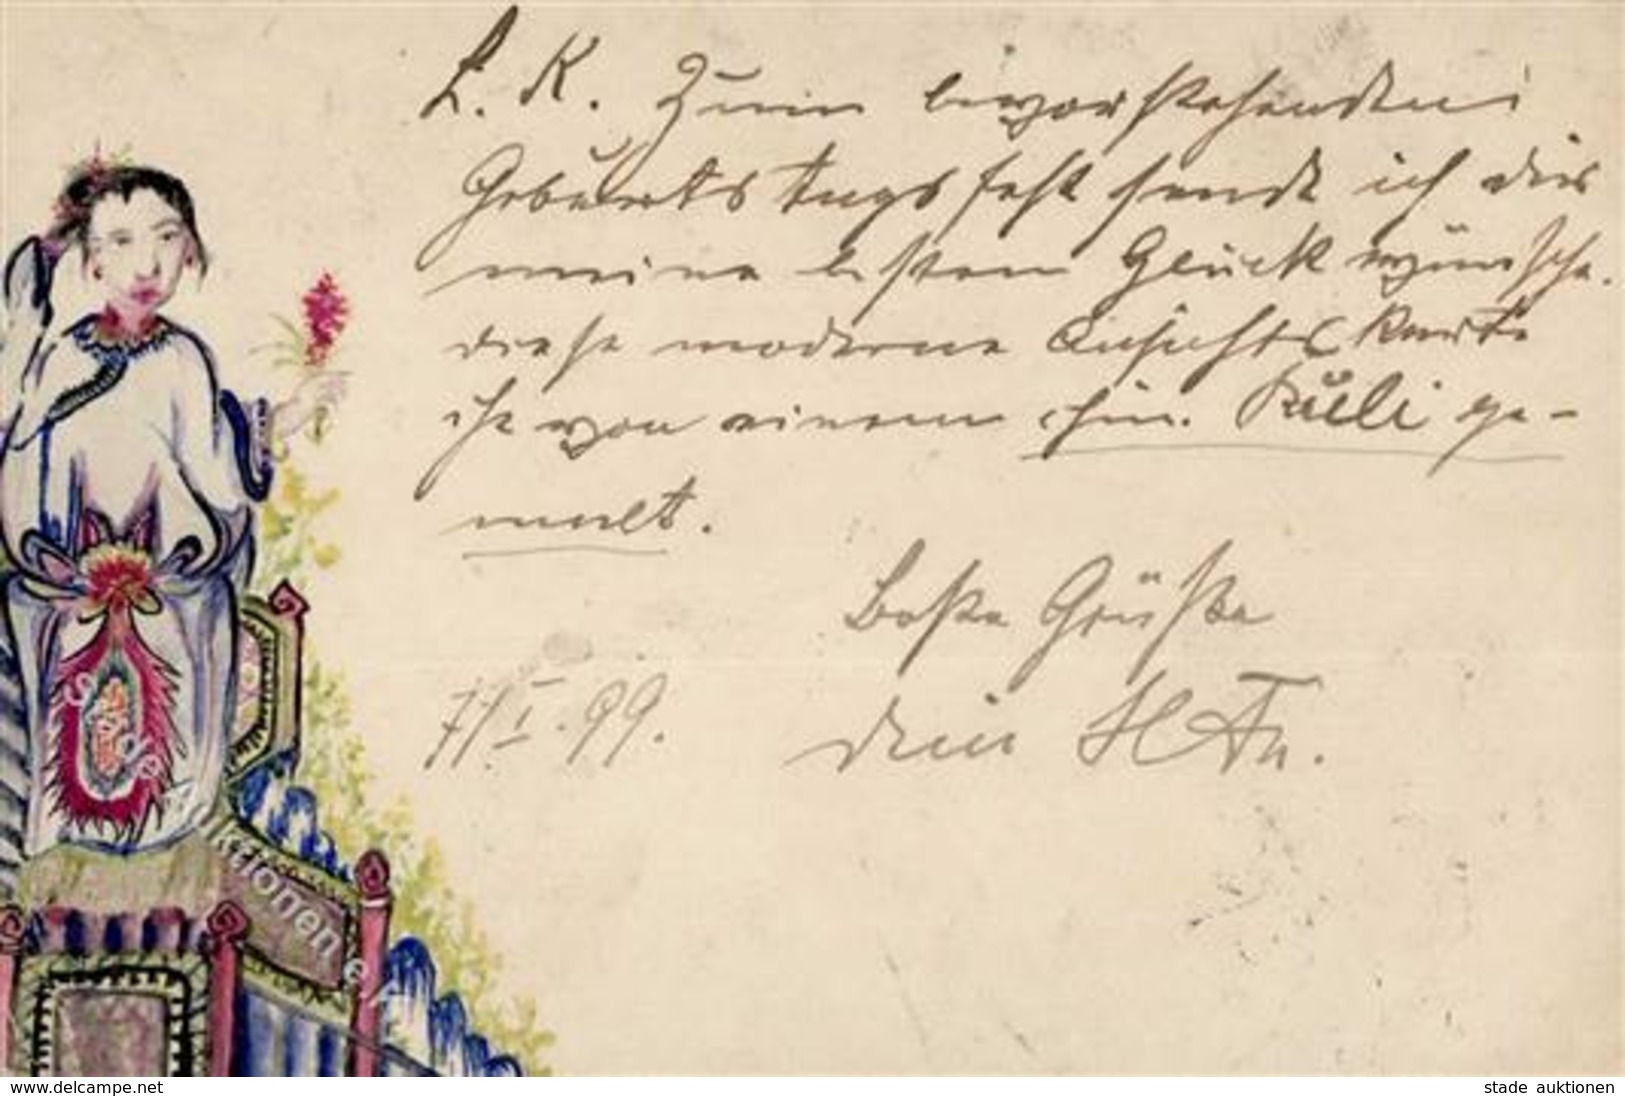 L. K. Zum bevorstehenden
Geburtstagsfest sende ich dir
meine besten Glückwünsche.
diese moderne Ansichtskarte
ist von einem chin. Kuli ge-
malt.
Beste Grüße
dein
7/I. 99.
stade
auktionen
www.delcampe.net
stade auktionen